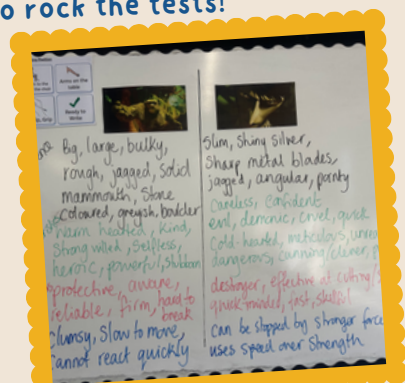 o rock the tests!
Arms on the table
Ready to Write
Big, large, bulky,
rough, jagged, solid
mammouth, Stone
Coloured, greyish, boulder
Warm hearted, Kind,
Strong willed, Selfless,
heroic, powerful, Stubborn
protective, aware,
reliable, firm, hard to
break
Clumsy, Slow to move,
Cannot react quickly
Slim, Shiny Silver,
Sharp metal blades,
jagged, angular, pointy
Careless, confident
evil, demonic, cruel, quick
Cold-hearted, meticulous,
dangerous, cunning/clever,
destroyer, effective at cutting/
quick minded, fast, skilful
can be stopped by stronger force
uses speed over strength